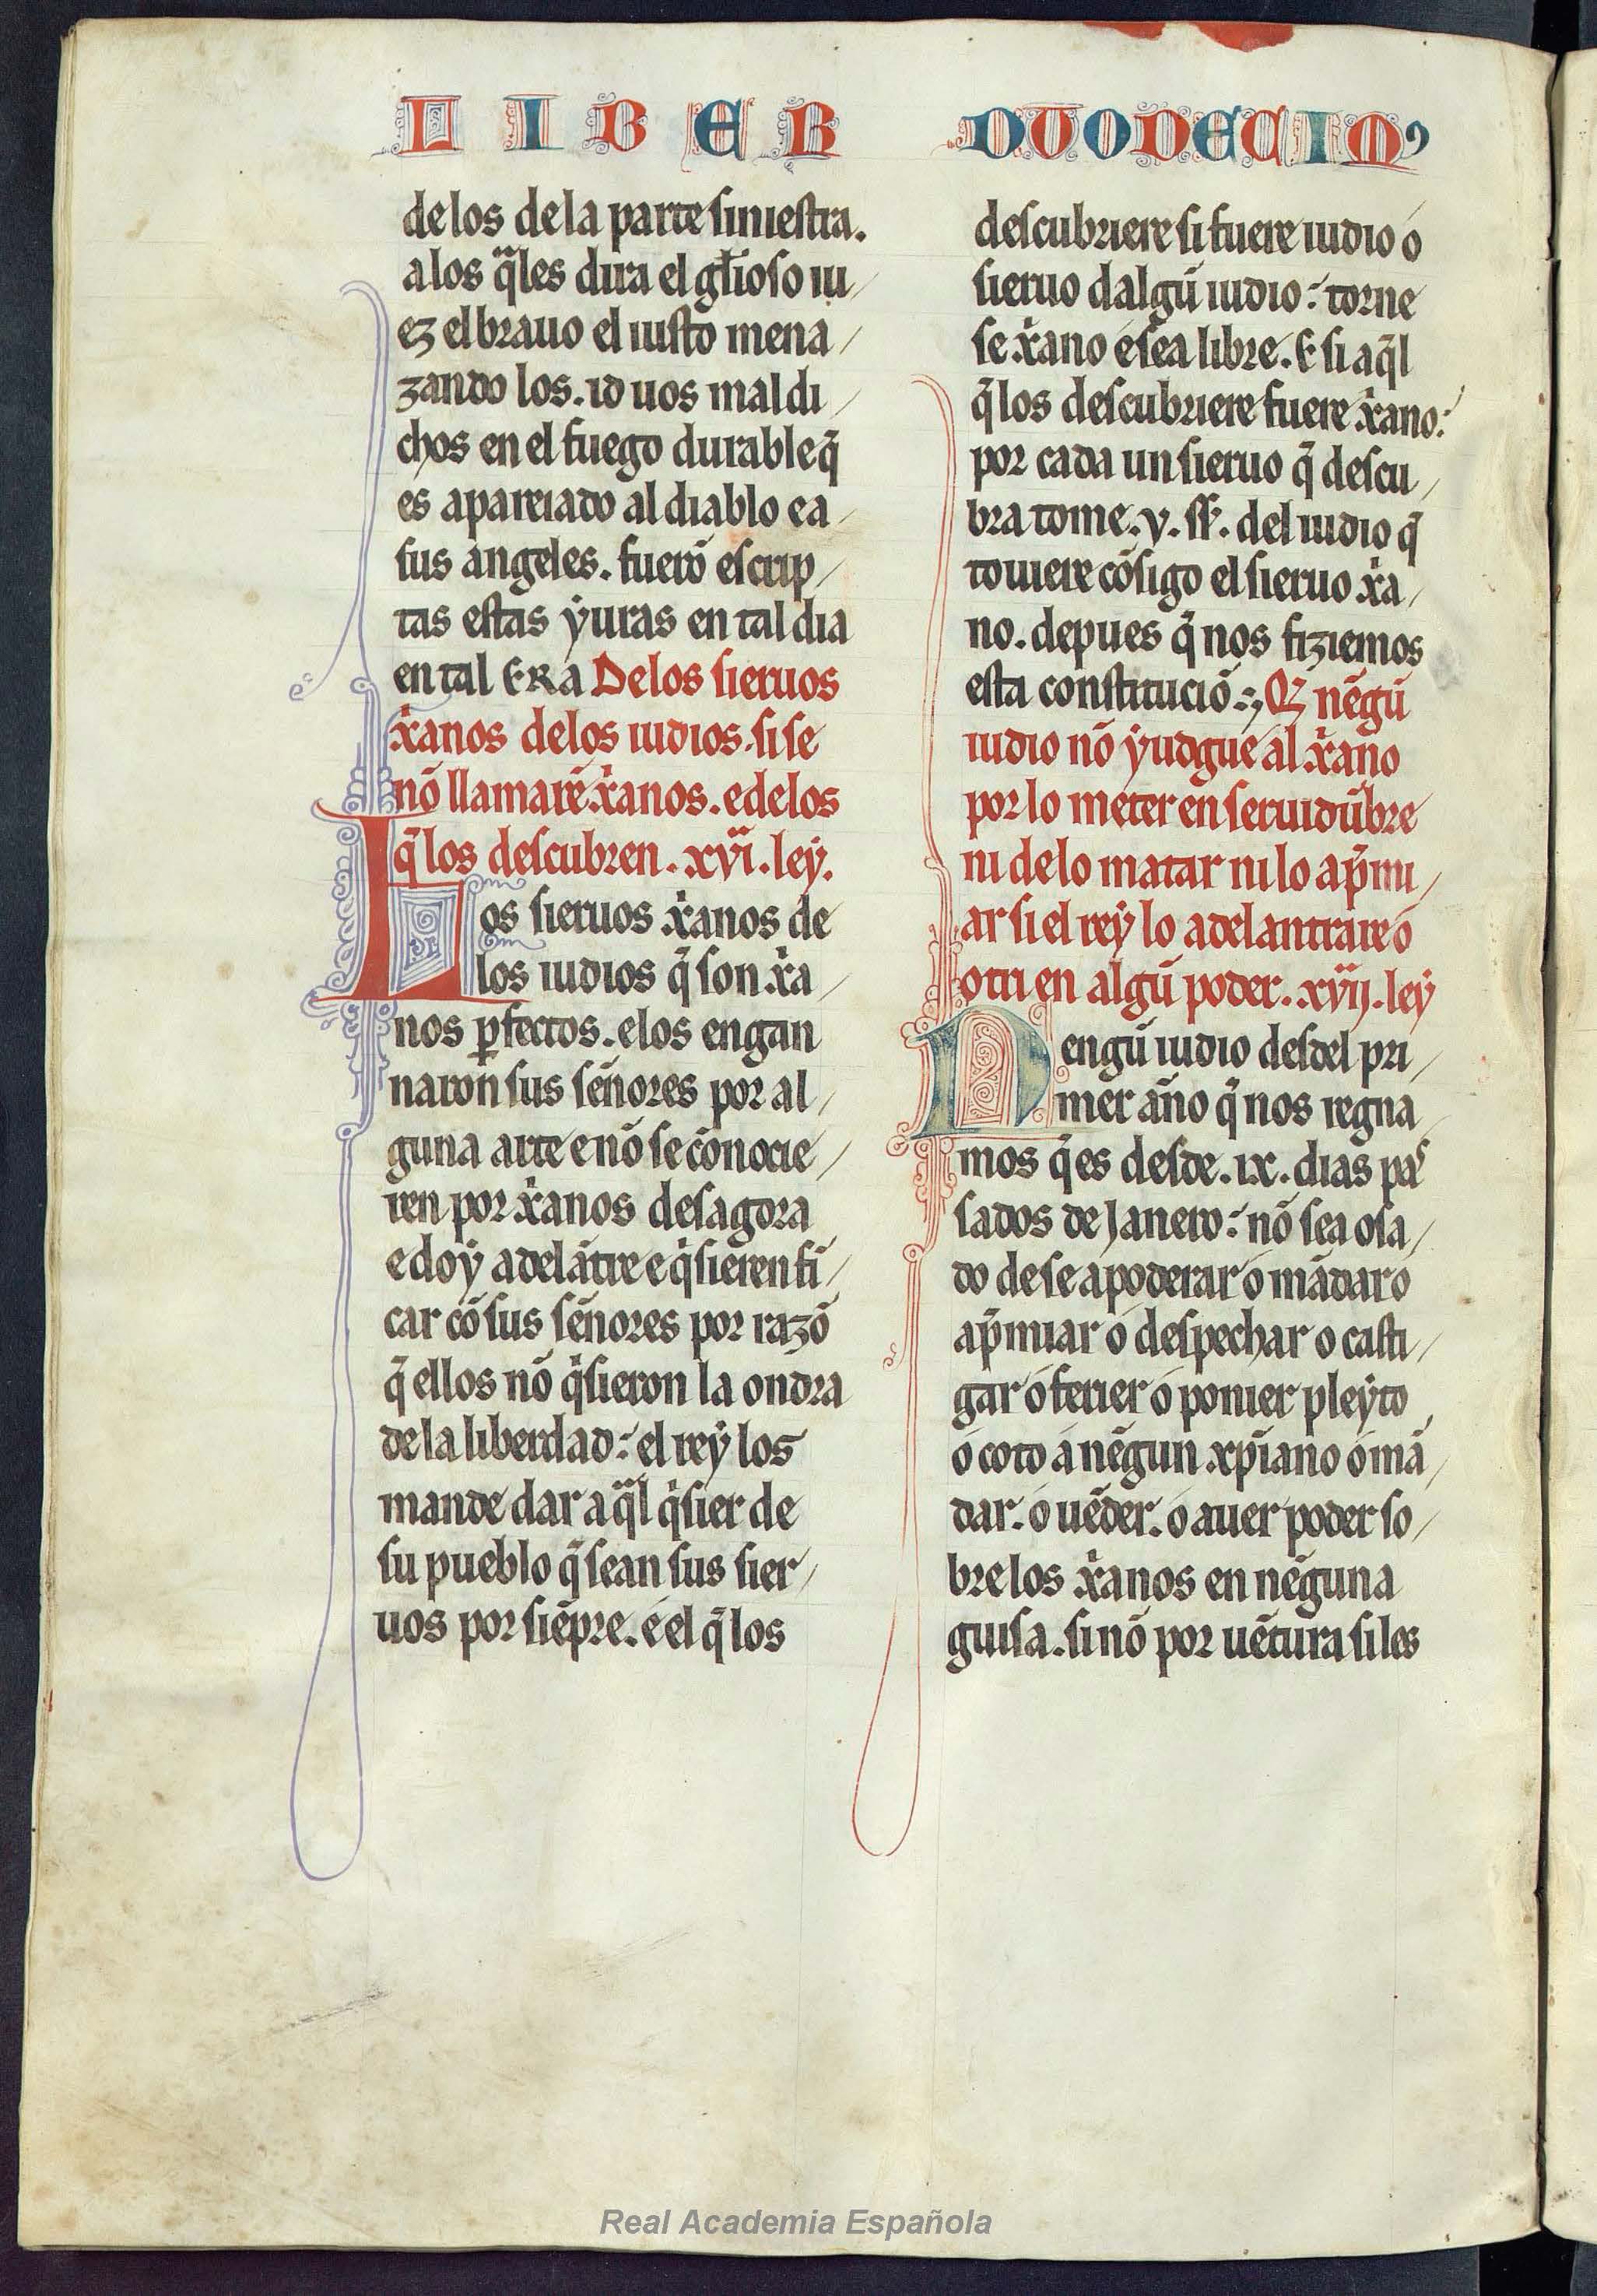 LIBER DUODECIMꝰ
delos dela parte siniestra.
alos q̃les dira el gl̃ioso iu/
ez el brauo el iusto mena/
zando los. id uos maldi/
chos en el fuego durable q̃
es apareiado al diablo ea/
sus angeles. fuerõ escrip/
tas estas yuras en tal dia
en tal ERA Delos sieruos
x̃anos delos iudios. si se
nõ llamarẽ x̃anos. e delos
q̃ los descubren. xvi. ley.
Los sieruos x̃anos de
los iudios q̃ son x̃a/
nos ꝑfectos. e los engan
naron sus señores por al/
guna arte e nõ se cõnocie/
ren por x̃anos desagora
e doy adelãtre e q̃sieren fi/
car cõ sus señores por razõ
q̃ ellos nõ q̃sieron la ondra
dela liberdad: el rey los
mande dar a q̃l q̃sier de
su pueblo q̃ sean sus sier/
uos por siẽpre. e el q̃ los
descubriere si fuere iudio o
sieruo dalgũ iudio: torne
se x̃ano e sea libre. E si aq̃l
q̃ los descubriere fuere x̃ano:
por cada un sieruo q̃ descu/
bra tome. v. ss̃. del iudio q̃
touiere cõsigo el sieruo x̃a/
no. depues q̃ nos fiziemos
esta constituciõ: Q̃ nẽgũ
iudio nõ yudgue al x̃ano
por lo meter en seruidũbre
ni de lo matar ni lo ap̃mi/
ar si el rey lo adelantrare o
otri en algũ poder. xvij. ley
Nengũ iudio desdel pri/
mer año q̃ nos regna/
mos q̃ es desde. ix. dias pas
sados de Janero: nõ sea osa/
do de se apoderar o mãdar o
ap̃miar o despechar o casti/
gar o ferier o ponier pleyto
o coto a nẽgun xp̃iano o mã/
dar. o uẽder. o auer poder so/
bre los x̃anos en nẽguna
guisa. si nõ por uẽtura si les
Real Academia Española